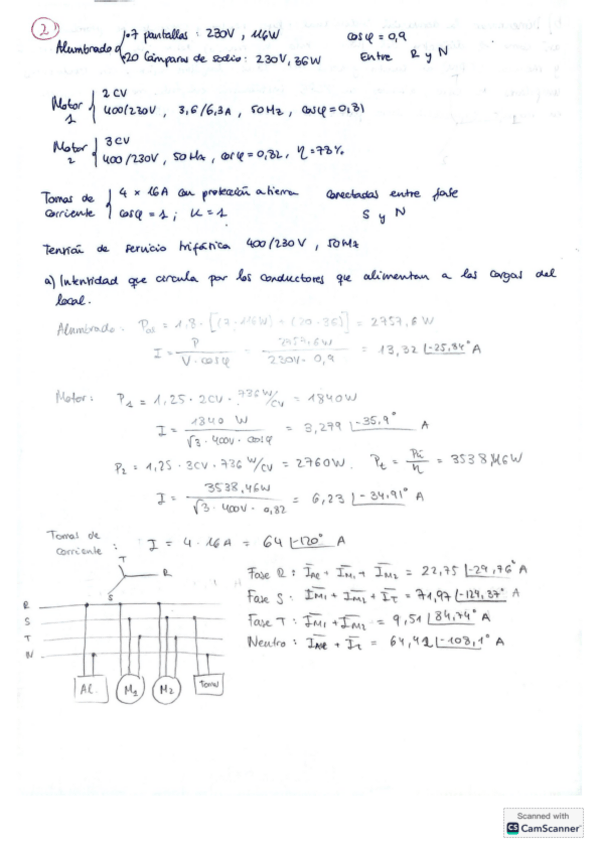 2
Alumbrado • 7 pantallas : 230V , 116W cosφ = 0,9
• 20 lámparas de sodio : 230V, 36W Entre R y N
Motor 1 { 2 CV
400/230V , 3,6/6,3A , 50Hz , cosφ = 0,81
Motor 2 { 3 CV
400/230V , 50Hz , cosφ = 0,82 , η = 78%
Tomas de corriente { 4 × 16A con protección a tierra conectadas entre fase
cosφ = 1 ; K = 1 S y N
Tensión de servicio trifásica 400/230V , 50Hz
a) Intensidad que circula por los conductores que alimentan a las cargas del
local.
Alumbrado : = 1,8 · [(7 · 116W) + (20 · 36)] = 2757,6 W
I = P / V · cosφ = 2757,6W / 230V · 0,9 = 13,32 ∟-25,84° A
Motor : P1 = 1,25 · 2CV · 736 W/CV = 1840W
I = 1840 W / √3 · 400V · cosφ = 3,279 ∟-35,9° A
P2 = 1,25 · 3CV · 736 W/CV = 2760W. Pt = / η = 3538,46W
I = 3538,46W / √3 · 400V · 0,82 = 6,23 ∟-34,91° A
Tomas de corriente : I = 4 · 16A = 64 ∟-120° A
T
R
S
Fase R : IAL + IM1 + IM2 = 22,75 ∟-29,76° A
Fase S : IM1 + IM2 + IT = 71,97 ∟-129,37° A
Fase T : IM1 + IM2 = 9,51 ∟84,74° A
Neutro : IAL + IT = 64,42 ∟-108,1° A
R
S
T
N
AL. M1 M2 Tomas
Scanned with
CS CamScanner